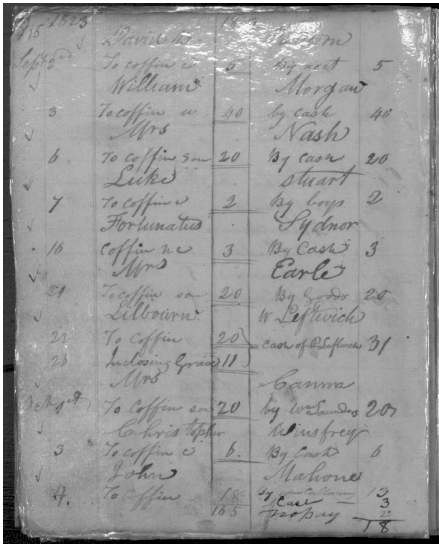 1823
David
Sept To coffin c 5 By acct 5
William Morgan
3 To coffin w 40 by Cash 40
Mrs Nash
6 To coffin son 20 By Cash 20
Luke Stuart
7 To coffin c 2 By boys 2
Fortunatus Sydnor
16 coffin n c 3 By Cash 3
Mrs Earle
21 To coffin son 20 By Goods 20
Lilbourn W Leftwich
22 To coffin 20 case of Leftwich 31
Inclosing Grave 11
Mrs Canna
Oct 1st To coffin son 20 by Wm Saunders 20
Christopher Winfrey
3 To coffin c 6 By Cash 6
John Mahone
4 To coffin 18 By 13
Cash 3
165 pay 2
18